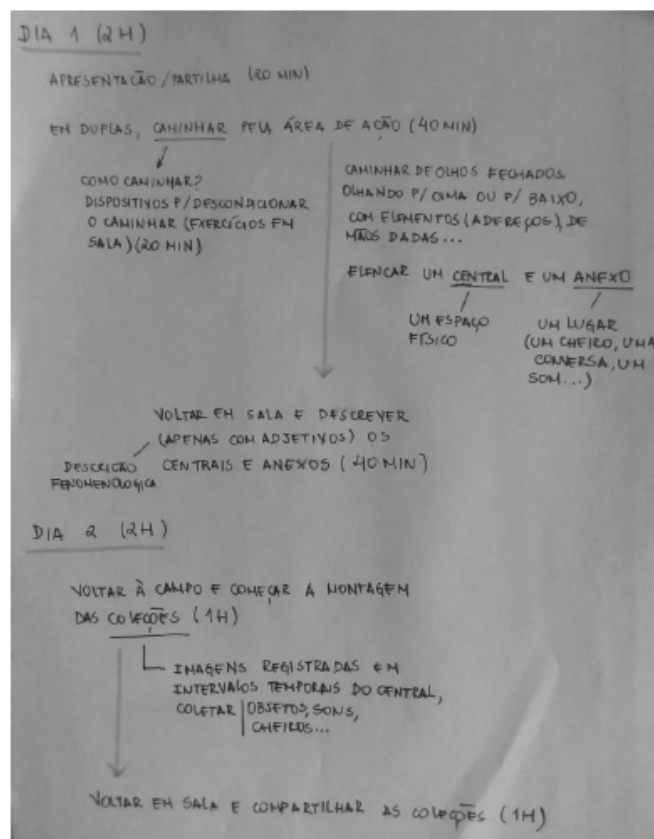 DIA 1 (2H)
APRESENTAÇÃO/PARTILHA (20 MIN)
EM DUPLAS, CAMINHAR PELA ÁREA DE AÇÃO (40 MIN)
COMO CAMINHAR?
DISPOSITIVOS P/DESCONDICIONAR
O CAMINHAR (EXERCÍCIOS EM
SALA) (20 MIN)
CAMINHAR DE OLHOS FECHADOS
OLHANDO P/ CIMA OU P/ BAIXO,
COM ELEMENTOS (ADEREÇOS), DE
MÃOS DADAS...
ELENCAR UM CENTRAL E UM ANEXO
UM ESPAÇO
FÍSICO
UM LUGAR
(UM CHEIRO, UMA
CONVERSA, UM
SOM...)
VOLTAR EM SALA E DESCREVER
(APENAS COM ADJETIVOS) OS
CENTRAIS E ANEXOS (40 MIN)
DESCRIÇÃO
FENOMENOLÓGICA
DIA 2 (2H)
VOLTAR À CAMPO E COMEÇAR A MONTAGEM
DAS COLEÇÕES (1H)
IMAGENS REGISTRADAS EM
INTERVALOS TEMPORAIS DO CENTRAL,
COLETAR OBJETOS, SONS,
CHEIROS...
VOLTAR EM SALA E COMPARTILHAR AS COLEÇÕES (1H)